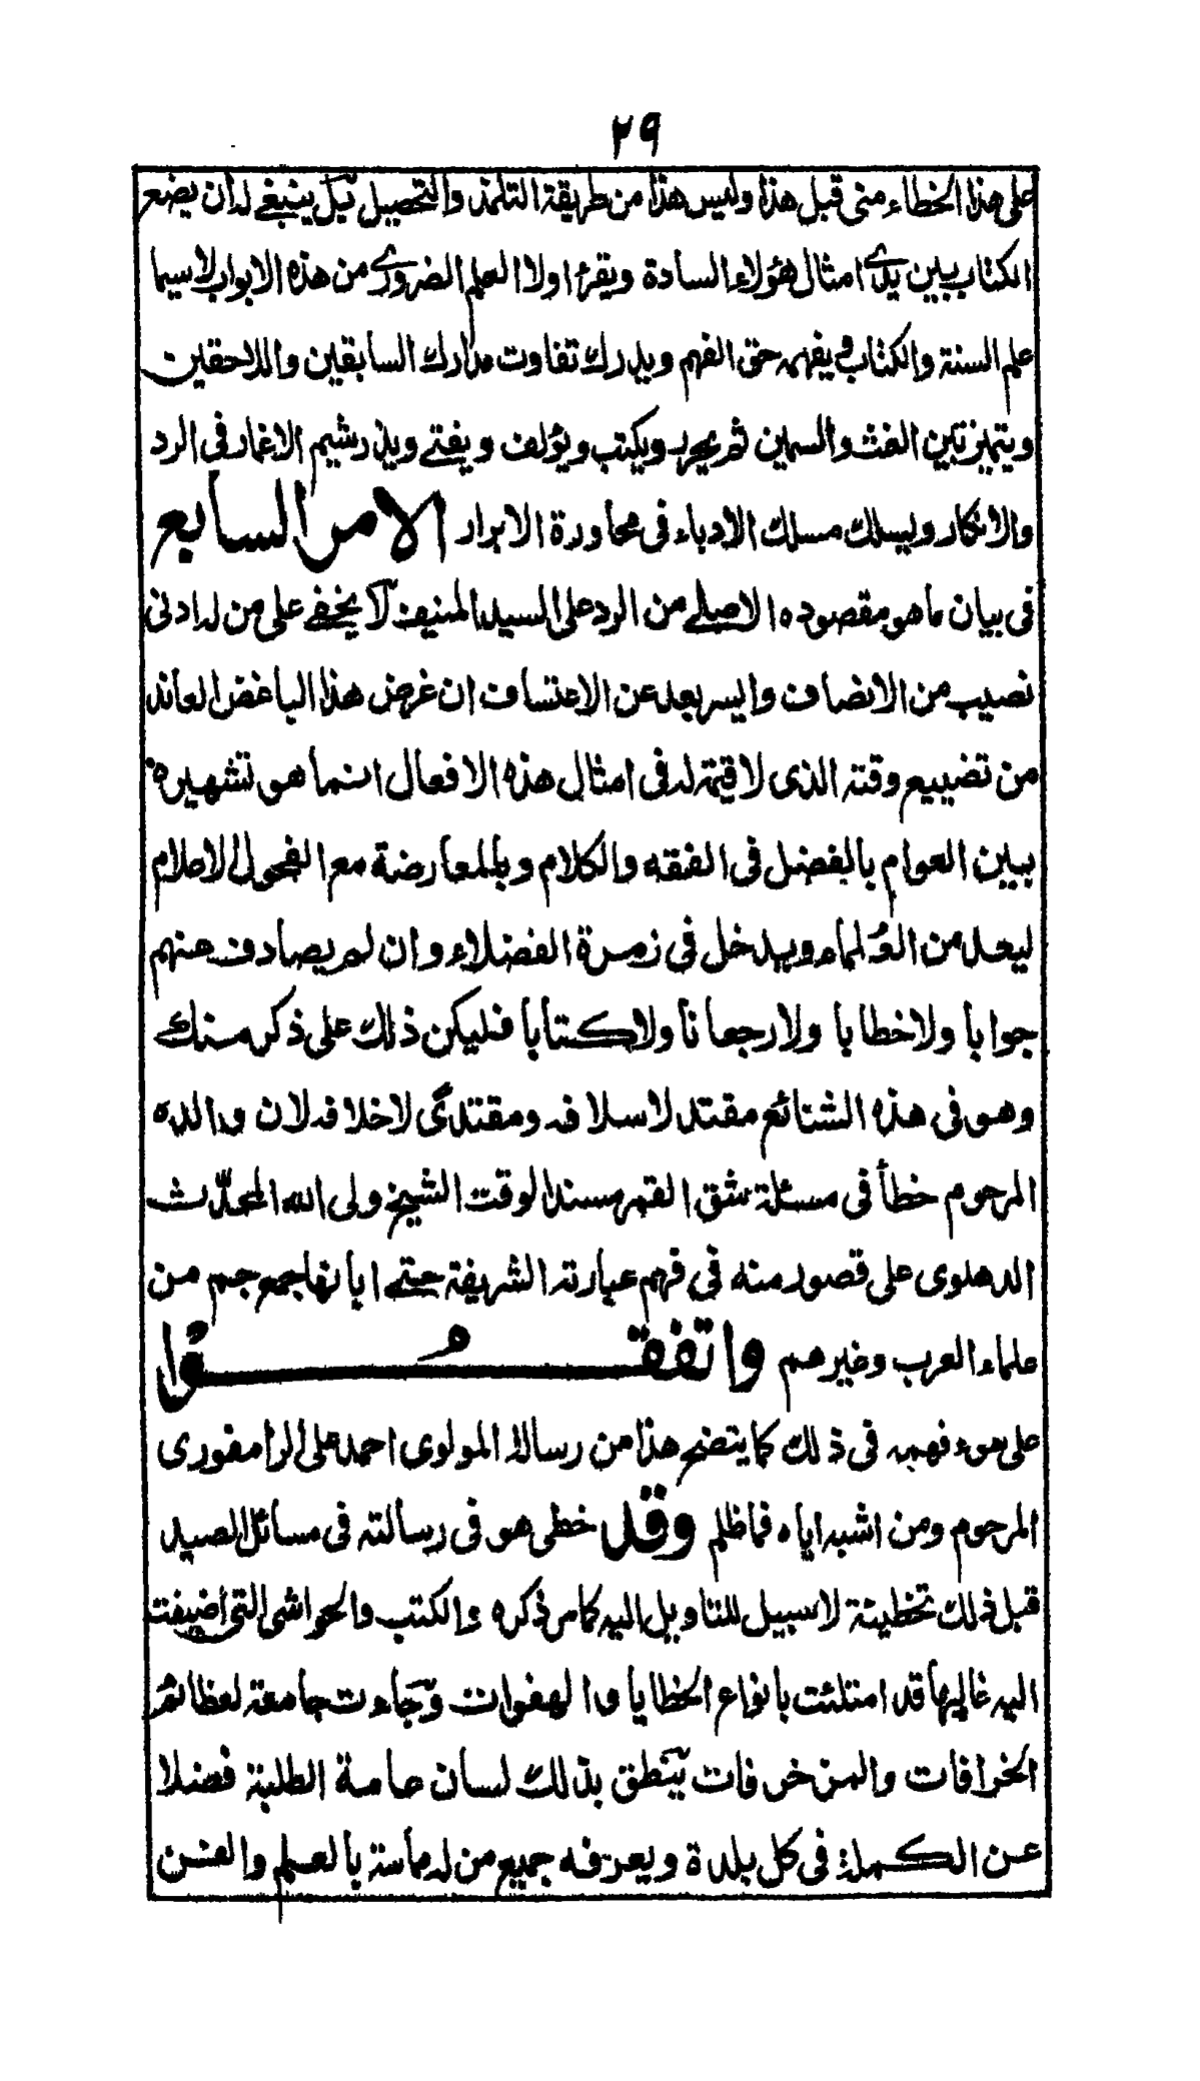 ٢٩
على هذا الخطاء منى قبل هذا وليس هذا من طريقة التلمذ والتحصيل بل ينبغي له ان يضع
الكتاب بين يدي امثال هؤلاء السادة ويقرؤ اولا العلم الضروري من هذه الابواب لاسيما
علم السنة والكتاب ويفهمه حق الفهم ويدرك تفاوت مدارك السابقين واللاحقين
ويتميز بين الغث والسمين ثم يحرر ويكتب ويؤلف ويفتي ويذر شيم الاغمار في الرد
والانكار ويسلك مسلك الأدباء فى محاورة الابرار الامر السابع
فى بيان ما هو مقصوده الاصلي من الرد على السيد المنيف لا يخفى على من له ادنى
نصيب من الانصاف وايسر بعد عن الاعتساف ان غرض هذا الباغض العاند
من تضييع وقته الذى لا قيمة له فى امثال هذه الافعال انما هو تشهيره
بين العوام بالفضل فى الفقه والكلام وبالمعارضة مع الفحول الاعلام
ليعد من العلماء ويدخل في زمرة الفضلاء وان لم يصادف عنهم
جوابا ولا خطابا ولا رجعانا ولا كتابا فليكن ذلك على ذكر منك
وهو فى هذه الشنائع مقتد لاسلافه ومقتدى لاخلافه لان والده
المرحوم خطأ فى مسئلة شق القمر مسند الوقت الشيخ ولى الله المحدّث
الدهلوى على قصور منه في فهم عبارته الشريفة حتى ابانها جمع جم من
علماء العرب وغيرهم واتفقوا
على سوء فهمه فى ذلك كما يتضح هذا من رسالة المولوى احمد على الرامفورى
المرحوم ومن اشبه اباه فما ظلم وقد خطى هو فى رسالته فى مسائل الصيد
قبل ذلك تخطيئة لا سبيل للتاويل اليه كما مر ذكره والكتب والحواشى التى أضيفت
اليه غالبها قد امتلئت بانواع الخطايا والهفوات وجاءت جامعة لعظائم
الخرافات والمزخرفات ينطق بذلك لسان عامة الطلبة فضلا
عن الكملة فى كل بلدة ويعرفه جميع من له مأسة بالعلم والفن